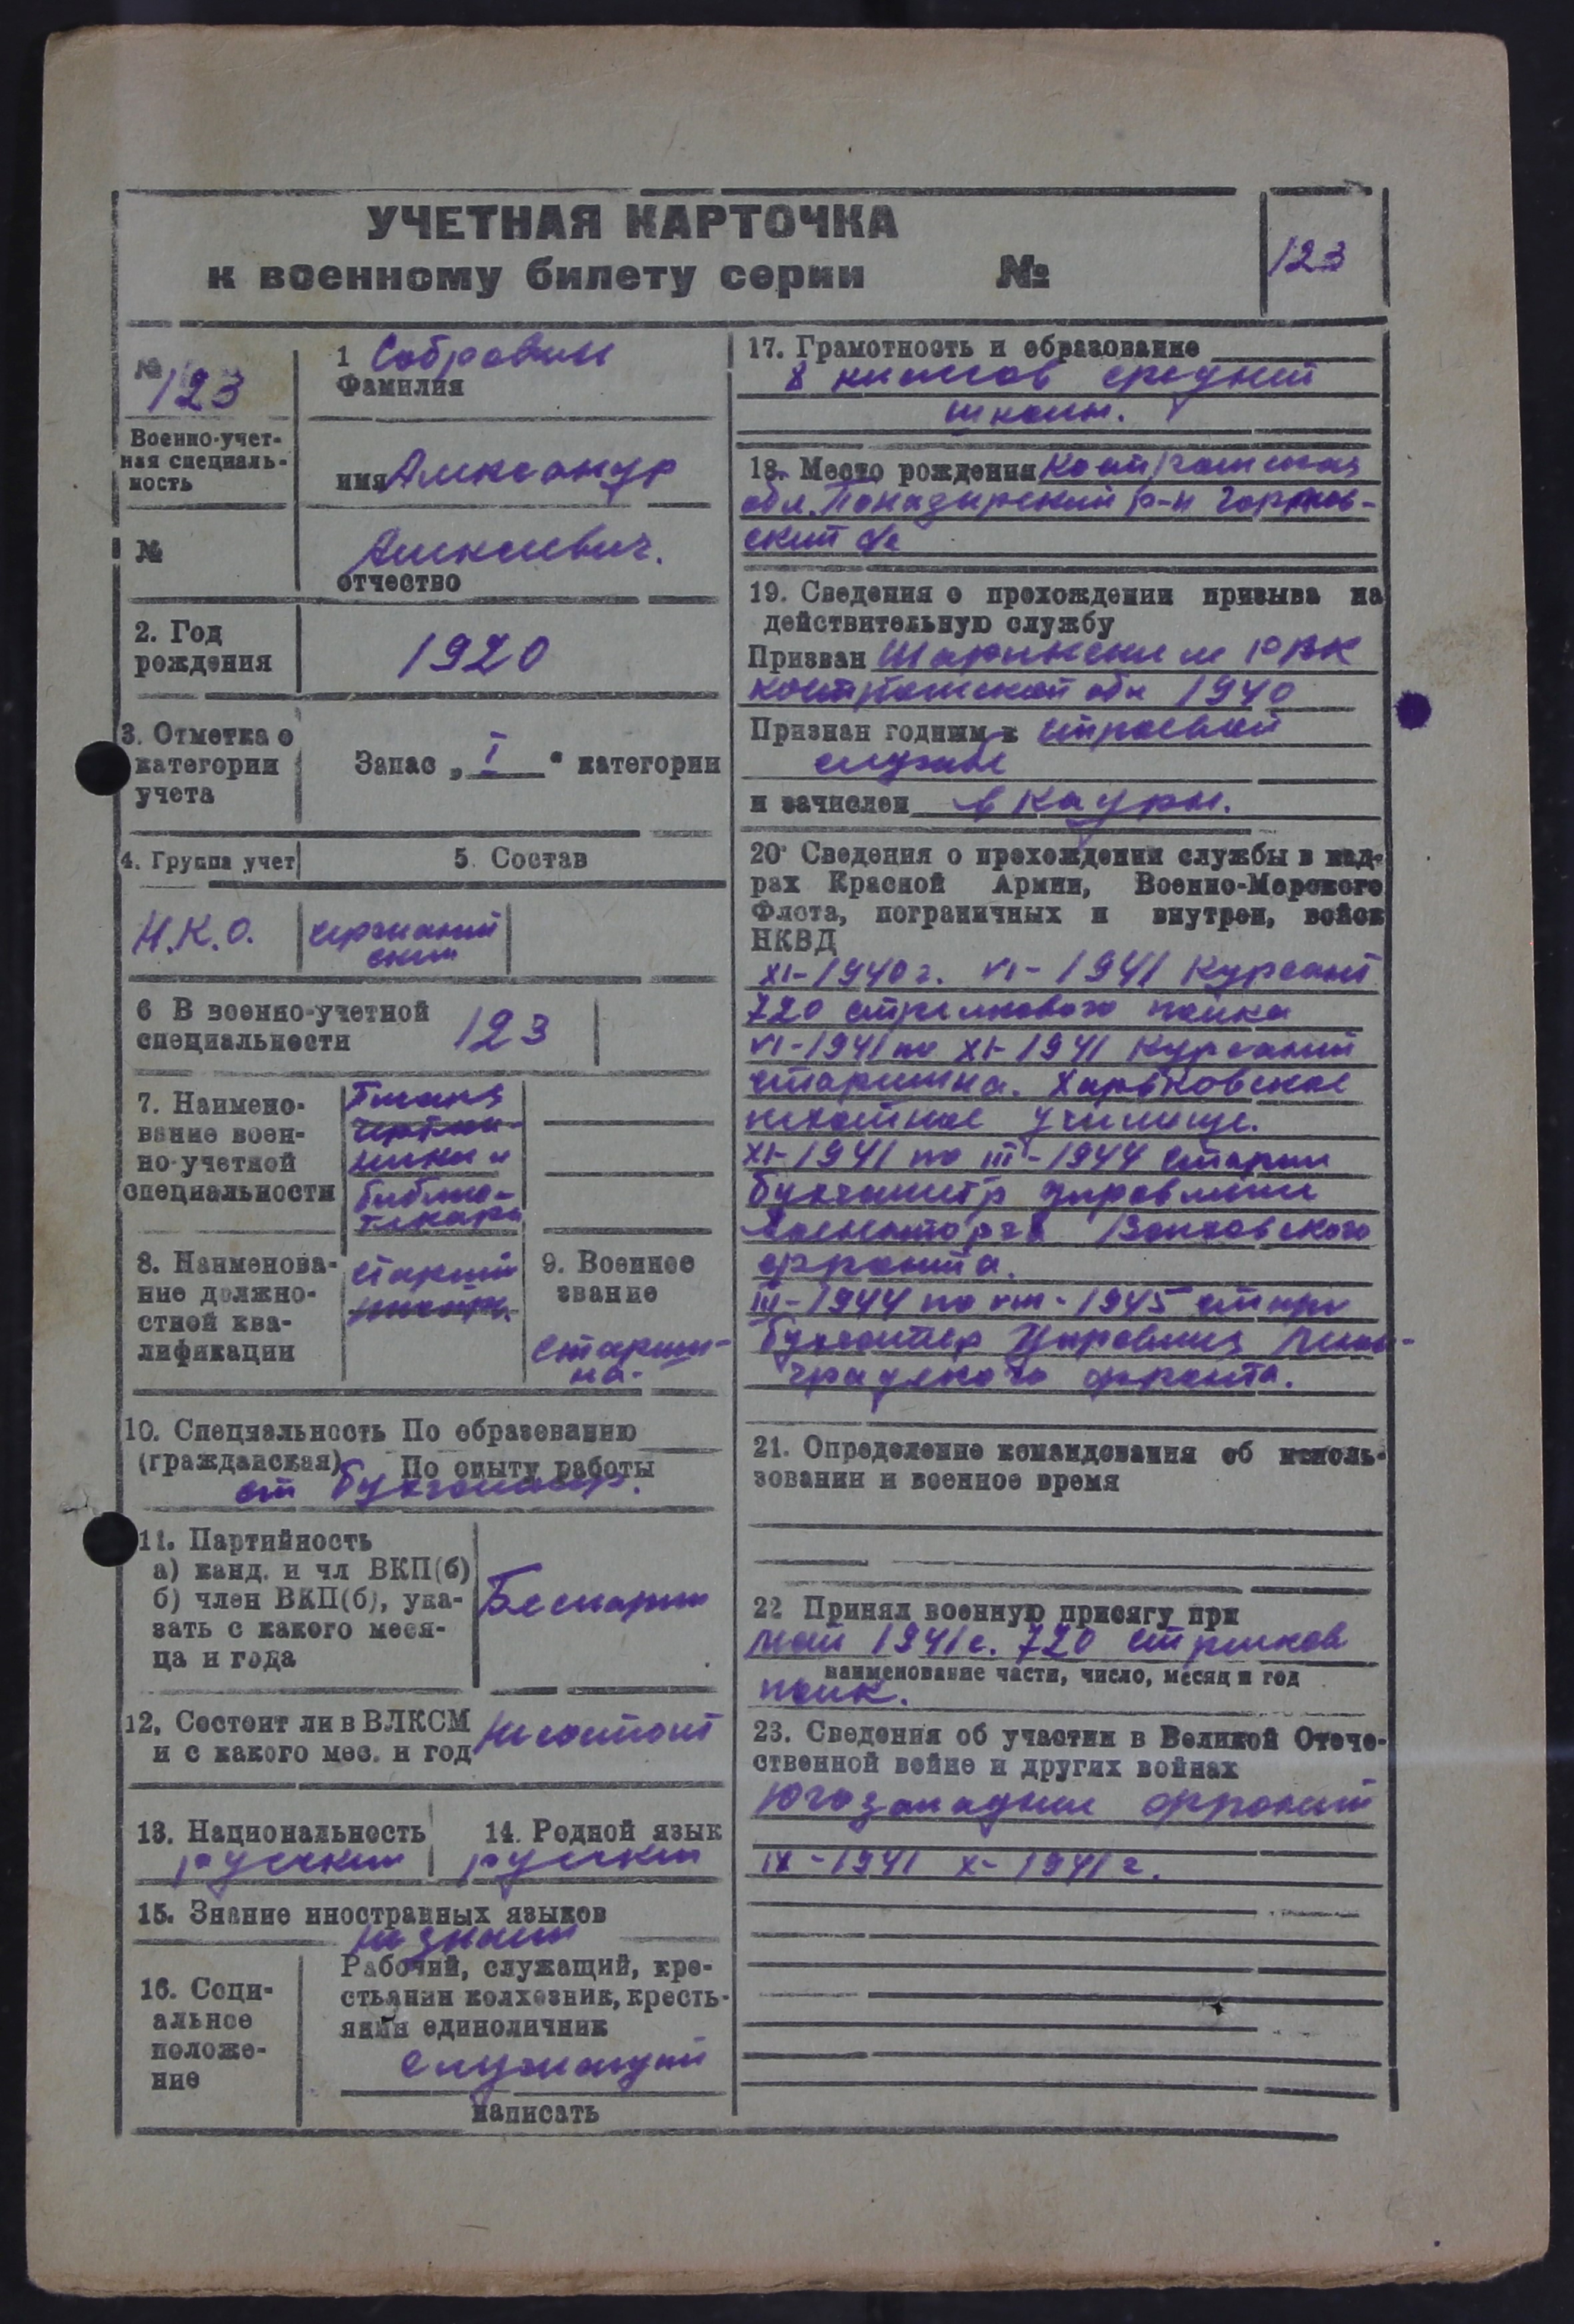 УЧЕТНАЯ КАРТОЧКА
к военному билету серии №
123
№
123
Военно-учет-
ная специаль-
ность
№
1 Собровин
Фамилия
имя Александр
Алексеевич.
отчество
2. Год
рождения
1920
3. Отметка о
категории
учета
Запас „ I “ категории
4. Группа учет
5. Состав
Н.К.О.
6 В военно-учетной
специальности
123
7. Наимено-
вание воен-
но-учетной
специальности
библио-
текарь
8. Наименова-
ние должно-
стной ква-
лификации
старший
9. Военное
звание
старши-
на.
10. Специальность По образованию
(гражданская) По опыту работы
ст бухгалтер.
11. Партийность
а) канд. и чл ВКП(б)
б) член ВКП(б), ука-
зать с какого меся-
ца и года
Беспартий
12. Состоит ли в ВЛКСМ
и с какого мес. и год
Не состоит
13. Национальность
русский
14. Родной язык
русский
15. Знание иностранных языков
не знает
16. Соци-
альное
положе-
ние
Рабочий, служащий, кре-
стьянин колхозник, кресть-
янин единоличник
служащий
написать
17. Грамотность и образование
8 классов средней
школы.
18. Место рождения Костромская
обл. Поназыревский р-н
ский с/с
19. Сведения о прохождении призыва на
действительную службу
Призван Шарьинским РВК
Костромской обл 1940
Признан годным к строевой
службе
и зачислен в кадры.
20. Сведения о прохождении службы в кад-
рах Красной Армии, Военно-Морского
Флота, пограничных и внутрен, войск
НКВД
XI-1940 г. VI-1941 Курсант
720 стрелкового полка
VI-1941 по XI-1941 Курсант
старшина. Харьковское
пехотное училище.
XI-1941 по III-1944 старш
бухгалтер управления
Военторга Волховского
фронта.
III-1944 по VIII-1945 старш
бухгалтер Управления Ленин-
градского фронта.
21. Определение командования об исполь-
зовании и военное время
22 Принял военную присягу при
май 1941 г. 720 стрелков
наименование части, число, месяц и год
полк.
23. Сведения об участии в Великой Отече-
ственной войне и других войнах
Югозападный фронт
IX-1941 X-1941 г.